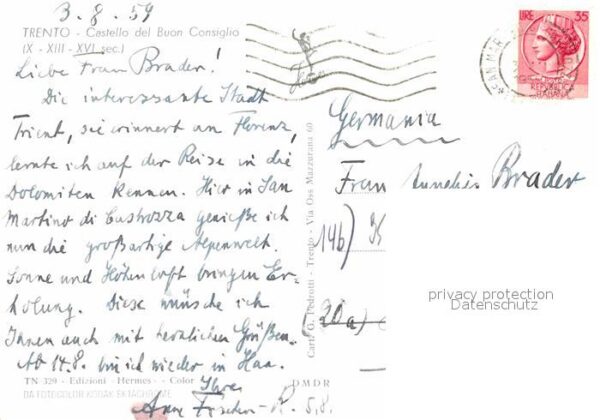 3.8.59
TRENTO - Castello del Buon Consiglio
(X - XIII - XVI sec.)
Liebe Frau Brader!
Die interessante Stadt
Trient, sie erinnert an Florenz,
lernte ich auf der Reise in die
Dolomiten kennen. Hier in San
Martino di Castrozza genieße ich
nun die großartige Alpenwelt.
Sonne und Höhenluft bringen Er-
holung. Diese wünsche ich
Ihnen auch mit herzlichen Grüßen.
Ab 14.8. bin ich wieder in Haa.
TN 329 - Edizioni - Hermes - Color
Ihre
DA FOTOCOLOR KODAK EKTACHROME
Anne Fischer-R. 5.8.
DMDR
Carte G. Pedrotti - Trento - Via Oss Mazzurana 60
LIRE 35
REPUBBLICA
ITALIANA
Germania
Frau Annelies Brader
(14b)
(20a)
privacy protection
Datenschutz